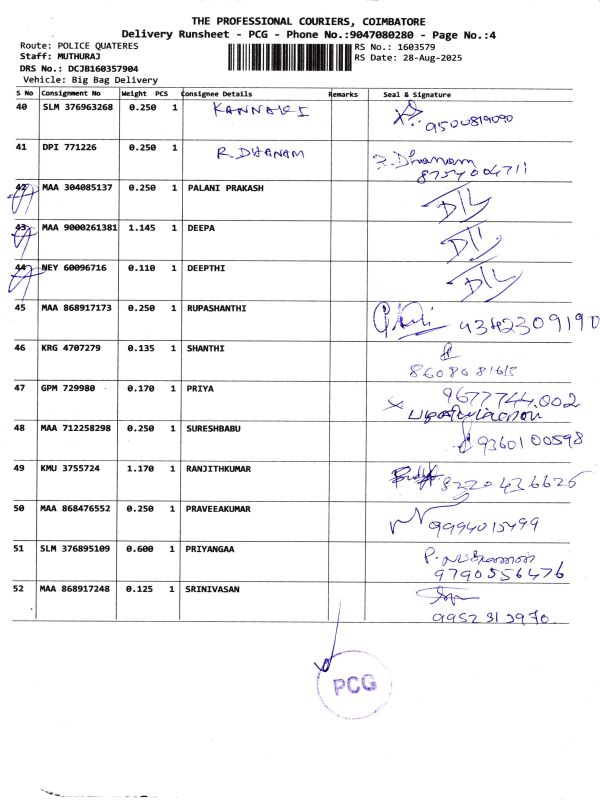 THE PROFESSIONAL COURIERS, COIMBATORE
Delivery Runsheet - PCG - Phone No.:9047080280 - Page No.:4
Route: POLICE QUATERES
RS No.: 1603579
Staff: MUTHURAJ
RS Date: 28-Aug-2025
DRS No.: DCJB160357904
Vehicle: Big Bag Delivery
S No Consignment No Weight PCS Consignee Details Remarks Seal & Signature
40 SLM 376963268 0.250 1 KANNAKI 9500819090
41 DPI 771226 0.250 1 R.DHANAM R.Dhanam
8754004711
42 MAA 304085137 0.250 1 PALANI PRAKASH D/L
43 MAA 9000261381 1.145 1 DEEPA D/L
44 NEY 60096716 0.110 1 DEEPTHI D/L
45 MAA 868917173 0.250 1 RUPASHANTHI 9342309190
46 KRG 4707279 0.135 1 SHANTHI
47 GPM 729980 0.170 1 PRIYA 9677744002
48 MAA 712258298 0.250 1 SURESHBABU 9360100598
49 KMU 3755724 1.170 1 RANJITHKUMAR 8220436626
50 MAA 868476552 0.250 1 PRAVEEAKUMAR 9994015499
51 SLM 376895109 0.600 1 PRIYANGAA
9790556476
52 MAA 868917248 0.125 1 SRINIVASAN
9952313970
PCG